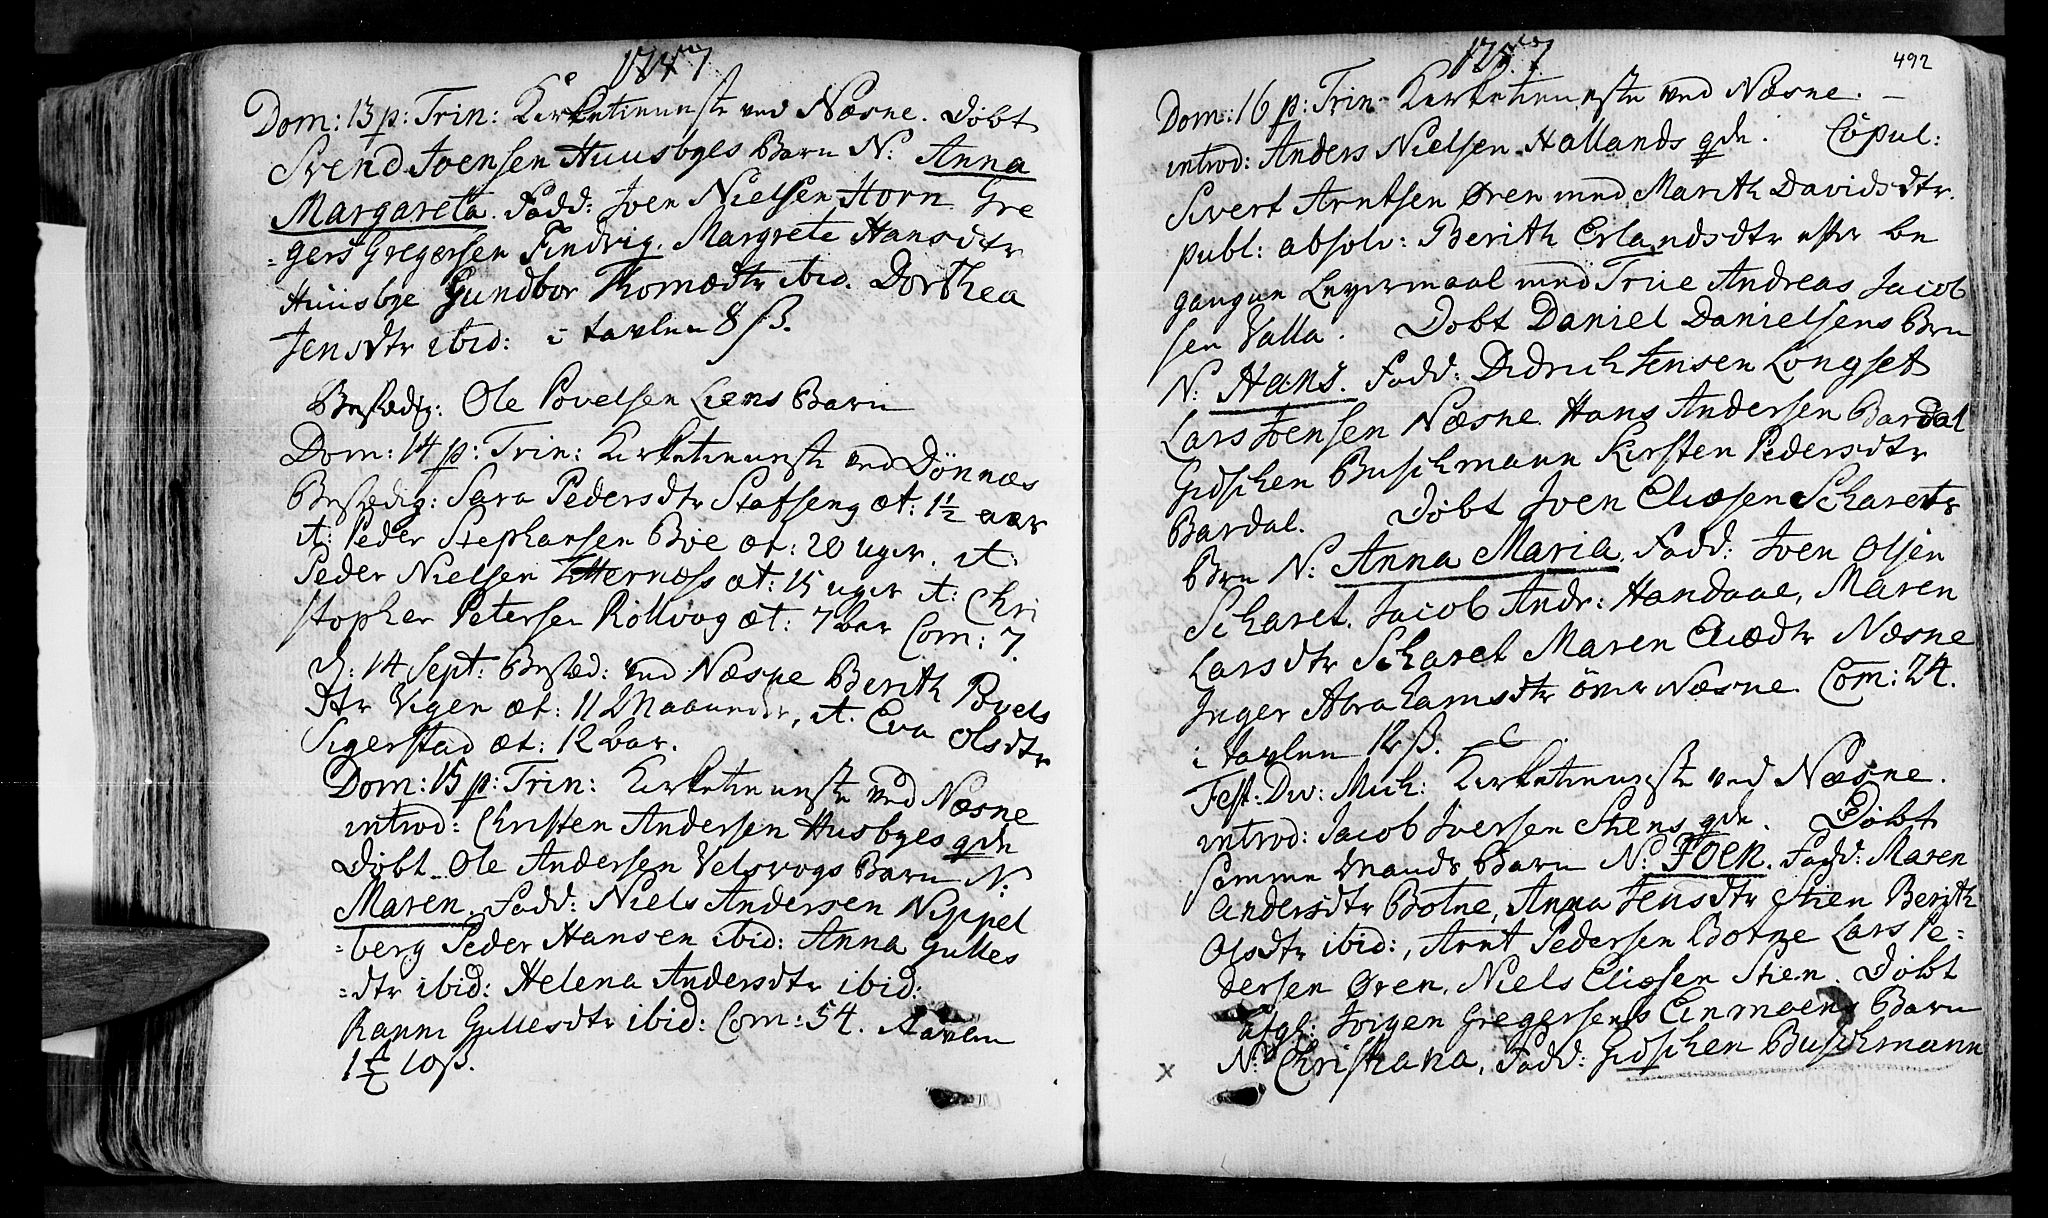 1757
Dom: 13 p: Trin: Kirketieneste ved Næsne. Döbt
Svend Joensen Huusbyes Barn N: Anna
Margareta. Fadd: Joen Nielsen Horn Gre
=gers Gregersen Findvig. Margrete Hansdtr
Huusbye Gundbor Thomædtr ibid. Dorthea
Jensdtr ibid: i tavlen 8 ß.
Ole Povelsen Liens Barn
Dom: 14 p: Trin: Kirketieneste ved Dönnæs
Sara Pedersdtr Stafseng æt: 1½ aar
it: Peder Stephansen Böe æt: 20 uger. it:
Peder Nielsen æt: 15 uger it: Chri
stopher Petersen Rölvog æt: 7 aar Com: 7.
D: 14 Sept: ved Næsne Berith Povels
dtr Vigen æt: 11 Maaneder, it. Eva Olsdtr
Sigerstad æt: 12 aar.
Dom: 15 p: Trin: Kirketieneste ved Næsne
introd: Christen Andersen Husbyes qde
Döbt Ole Andersen Velsvogs Barn N:
Maren. Fadd: Niels Andersen Nyppel
=berg Peder Hansen ibid: Anna Gulles
=dtr ibid: Helena Andersdtr ibid:
Ranni Gullesdtr ibid: Com: 54. Tavlen
10 ß.
1757
492
Dom: 16 p: Trin: Kirketieneste ved Næsne.
introd: Anders Nielsen Hallands qde. Copul:
Sivert Arntsen Øren med Marith Davidsdtr.
publ: absolv: Berith Erlandsdtr efter be
gangen Leyermaal med True Andreas Jacob
sen Valla. Döbt Daniel Danielsens Brn
N: Hans. Fadd: Didrich Jensen Longset
Lars Joensen Næsne Hans Andersen Bardal
Gidschen Buschmann Kirsten Pedersdtr
Bardal. Döbt Joen Eliæsen Scharets
Brn N: Anna Maria. Fadd: Joen Olsen
Scharet. Jacob Andr: Handaae, Maren
Larsdtr Scharet Maren Eliædtr Næsne
Inger Abrahamsdtr över Næsne. Com: 24.
i tavlen 12 ß.
Fest: Div: Mich: Kirketieneste ved Næsne.
introd: Jacob Iversen Stens qde. Döbt
samme Mands Barn N: Foen. Fadd: Maren
Andersdtr Botne, Anna Jensdtr Stien Berith
Olsdtr ibid:, Arnt Pedersen Botne Lars Pe=
dersen Øren, Niels Eliæsen Stien. Döbt
Jörgen Greggersens Einmoens Barn
x N: Christiana, Fadd: Gidschen Buschmann